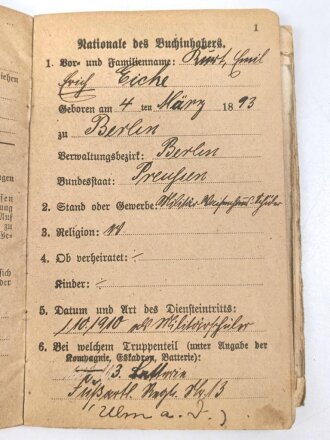 1
Nationale des Buchinhabers.
1. Vor- und Familienname: Kurt, Emil
Erich Eiche
Geboren am 4 ten März 1893
zu Berlin
Verwaltungsbezirk: Berlin
Bundesstaat: Preussen
2. Stand oder Gewerbe: Militär Waisenhaus Schüler
3. Religion:
4. Ob verheiratet: ÷
Kinder: ÷
5. Datum und Art des Diensteintritts:
1.10.1910 als Militärschüler
6. Bei welchem Truppenteil (unter Angabe der
Kompagnie, Eskadron, Batterie):
3. Batterie
Fußartl. Regts. 13
(Ulm a. D.)